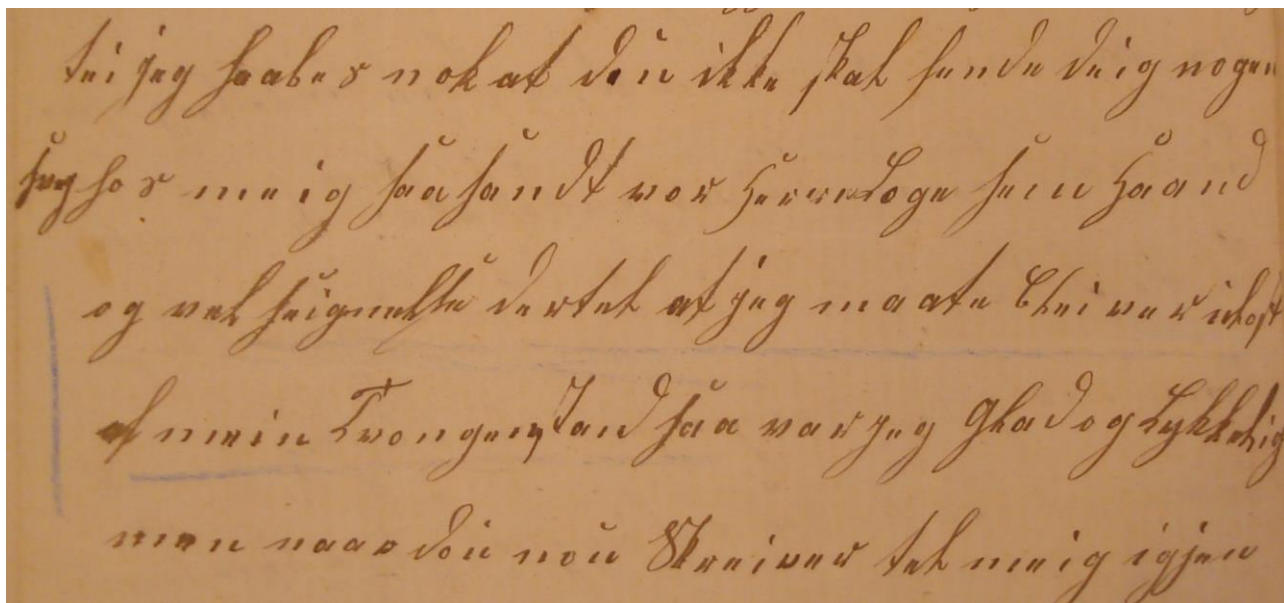 tei jeg haabes nok at dou ikke skal sende deig nogen
hos meig saa sandt vor Herre Loge sein Haand
og velseignelse dertel at jeg maate blei ver
af mein Trongen Tand saa var jeg Glad og Lykkelig
men naar dou nou Skreiver tel meig igjen